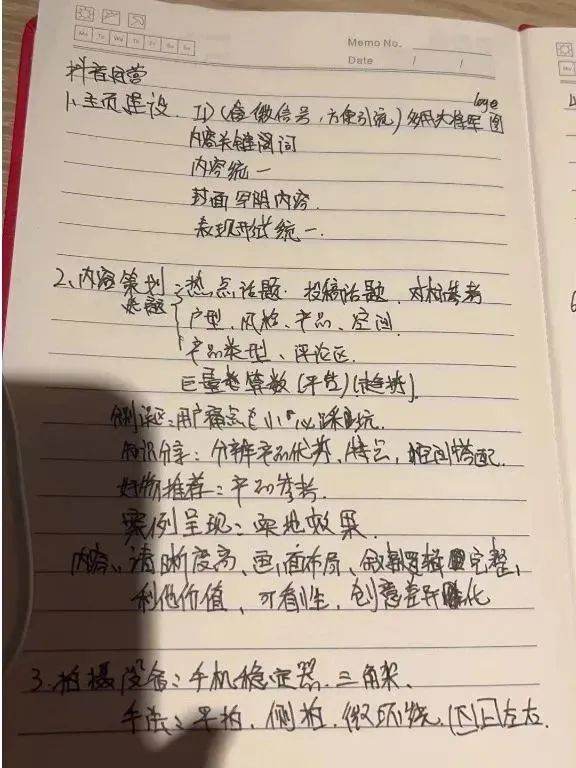 Mo Tu We Th Fr Sa Su
Memo No.
Date / /
抖音运营
1、主页建设. ID(含微信号,方便引流) 多用大将军图 logo
内容关键词
内容统一
封面 内容.
表现形式统一.
2、内容策划 = 热点话题. 投稿话题. 对标参考
选题 户型、风格、产品、空间.
产品类型、评论区.
巨量 算数 (平台)(趋势).
误区: 用户痛点 必踩 坑
知识分享: 分辨产品优劣、特点, 空间搭配.
好物推荐: 产品参考.
案例呈现: 实地效果.
内容、清晰度高、画面布局、叙事逻辑 完整,
利他价值、可看性、创意差异 化
3.拍摄设备: 手机稳定器. 三角架、
手法: 平拍. 侧拍. 微环绕. 下上左右.